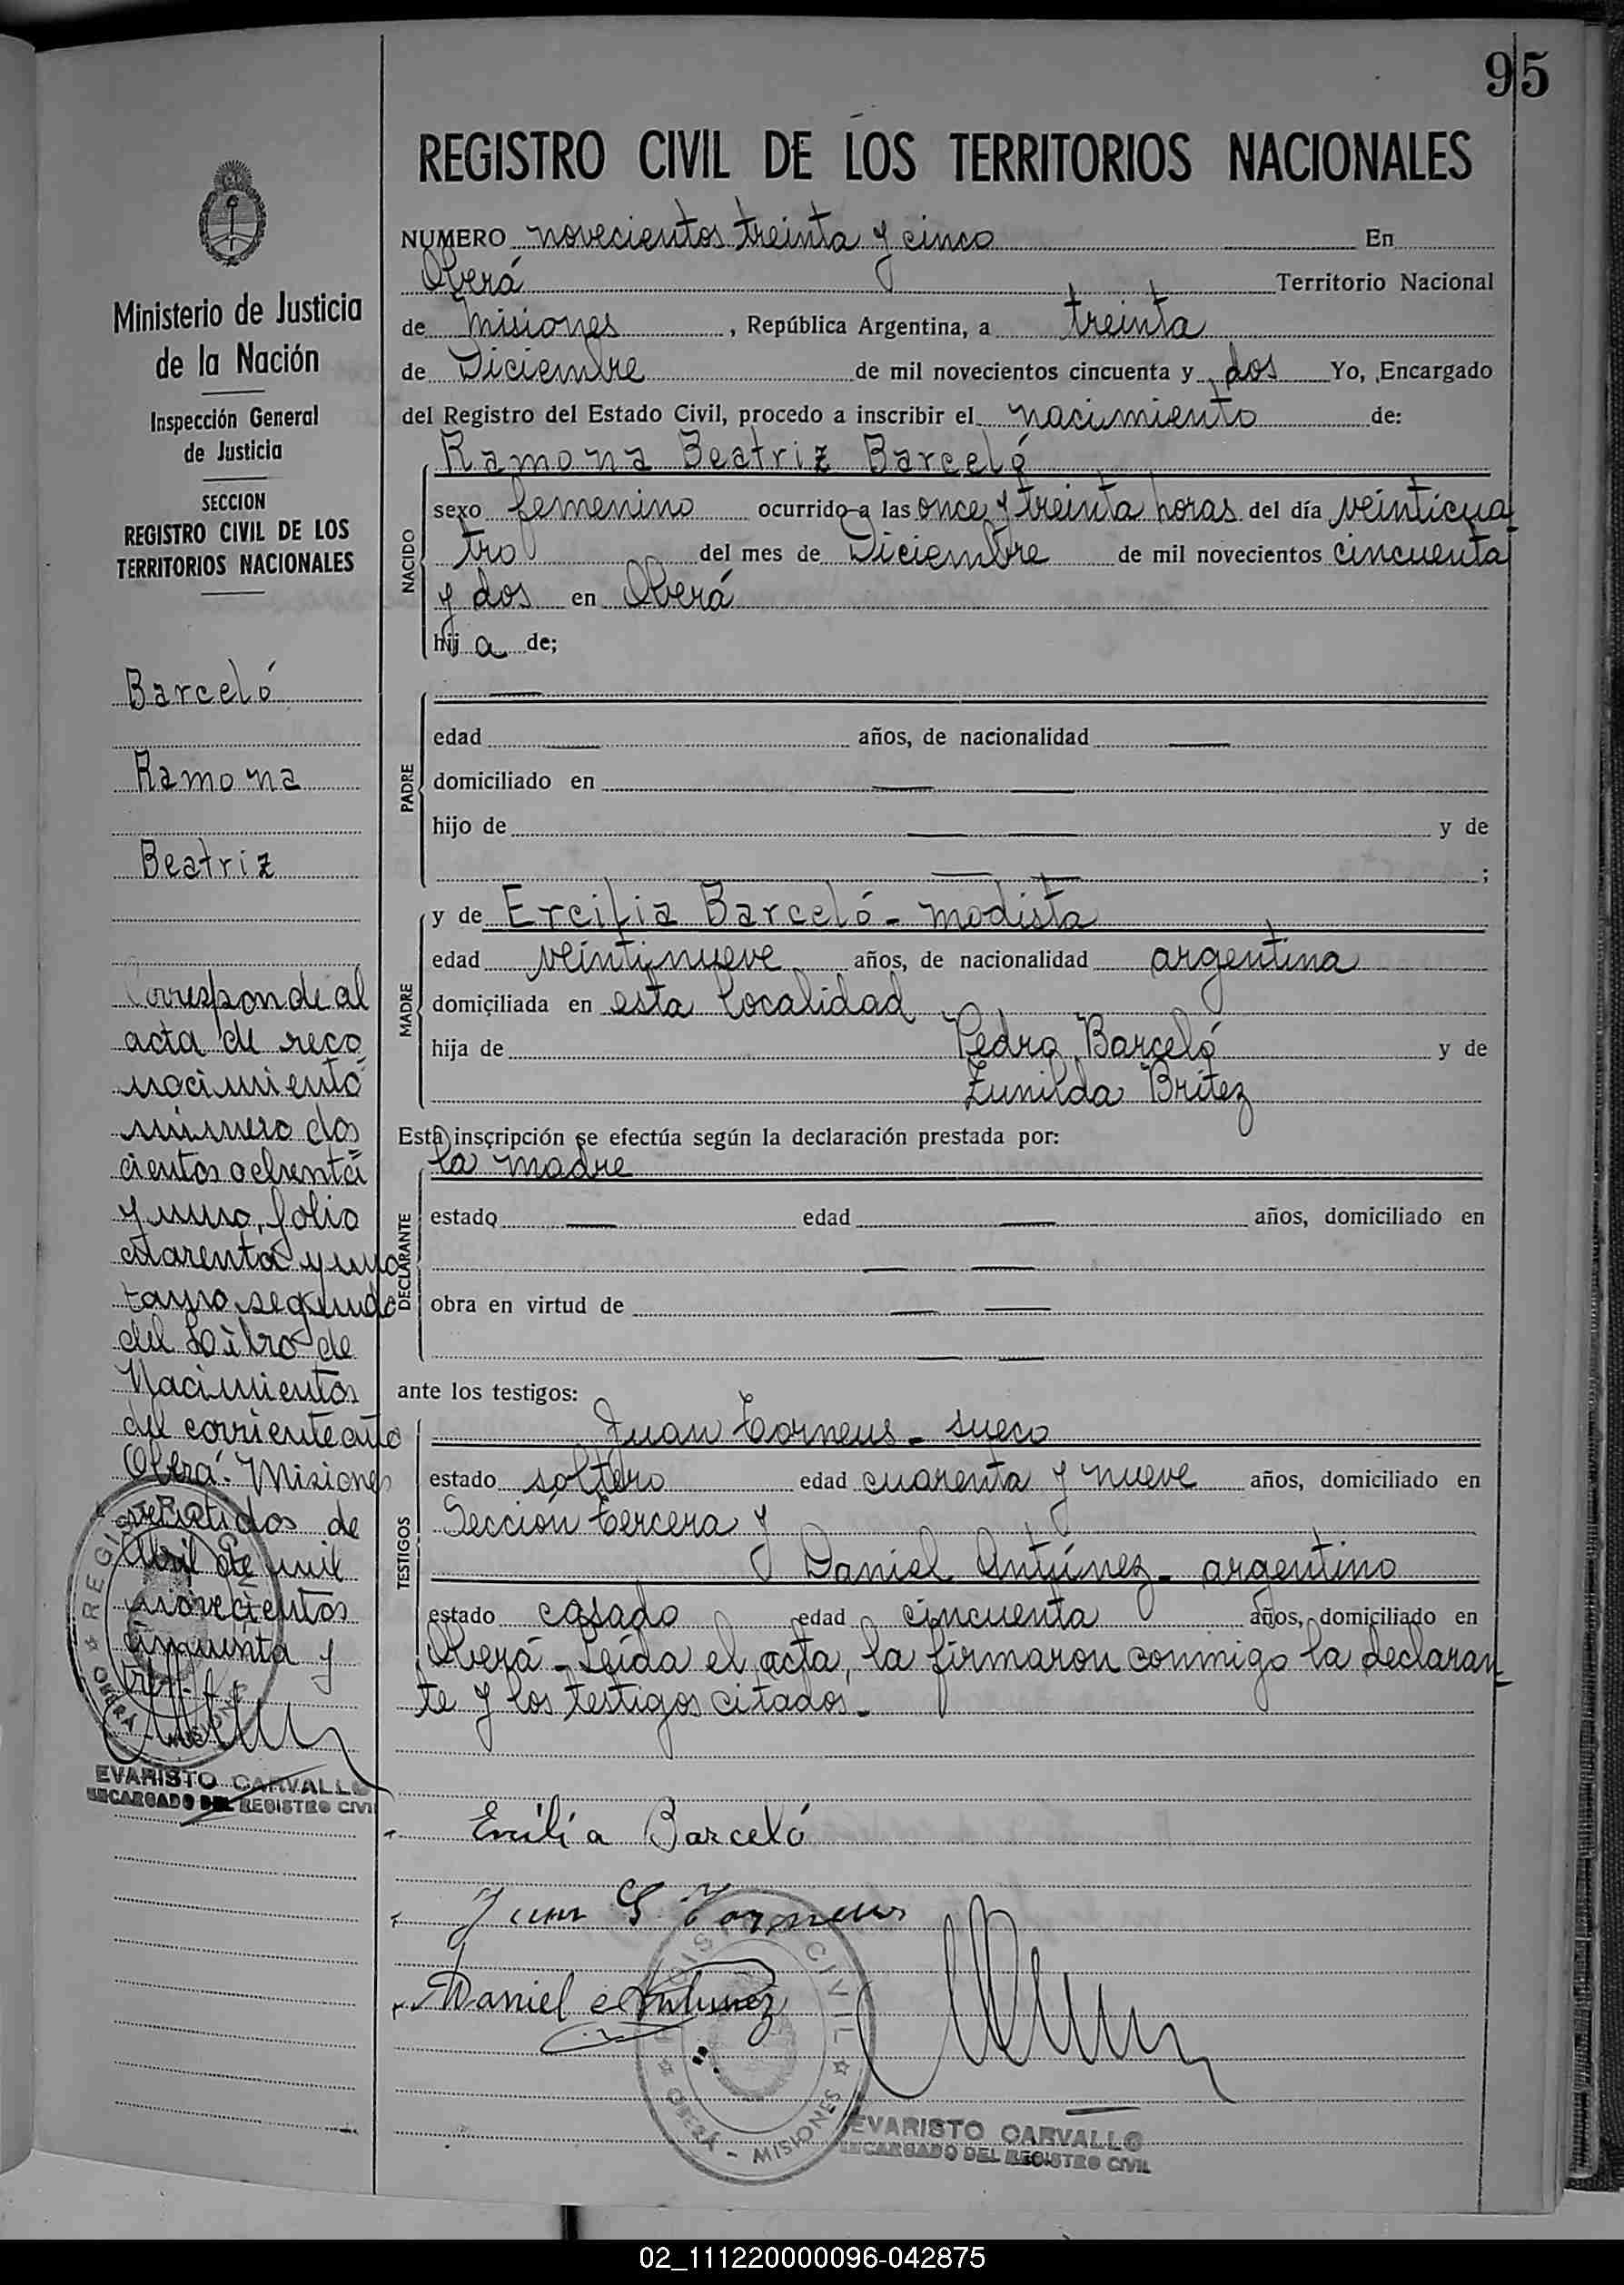 95
REGISTRO CIVIL DE LOS TERRITORIOS NACIONALES
NUMERO novecientos treinta y cinco En
Oberá Territorio Nacional
de Misiones, República Argentina, a treinta
de Diciembre de mil novecientos cincuenta y dos Yo, Encargado
del Registro del Estado Civil, procedo a inscribir el nacimiento de:
Ramona Beatriz Barceló
NACIDO
sexo femenino ocurrido a las once y treinta horas del día veinticua
tro del mes de Diciembre de mil novecientos cincuenta
y dos en Oberá
hij a de;
PADRE
edad años, de nacionalidad
domiciliado en
hijo de y de
;
MADRE
y de Ercilia Barceló - modista
edad veintinueve años, de nacionalidad argentina
domiciliada en esta localidad
hija de Pedro Barceló y de
Zunilda Britez
Esta inscripción se efectúa según la declaración prestada por:
la madre
DECLARANTE
estado edad años, domiciliado en
obra en virtud de
ante los testigos:
TESTIGOS
Juan Torneus - sueco
estado soltero edad cuarenta y nueve años, domiciliado en
Sección tercera y
Daniel Antúnez - argentino
estado casado edad cincuenta años, domiciliado en
Oberá - Leída el acta, la firmaron conmigo la declaran
te y los testigos citados.-
Ercilia Barceló
Juan G. Torneus
Daniel Antunez
REGISTRO CIVIL
OBERÁ - MISIONES
EVARISTO CARVALLO
ENCARGADO DEL REGISTRO CIVIL
Ministerio de Justicia
de la Nación
Inspección General
de Justicia
SECCION
REGISTRO CIVIL DE LOS
TERRITORIOS NACIONALES
Barceló
Ramona
Beatriz
Corresponde al
acta de reco
nocimiento
número dos
cientos ochenta
y uno, folio
cuarenta y uno
tomo segundo
del Libro de
Nacimientos
del corriente año
Oberá. Misiones
veintidos de
Abril de mil
novecientos
cincuenta y
tres.-
REGISTRO CIVIL
OBERÁ - MISIONES
EVARISTO CARVALLO
ENCARGADO DEL REGISTRO CIVI
02_111220000096-042875